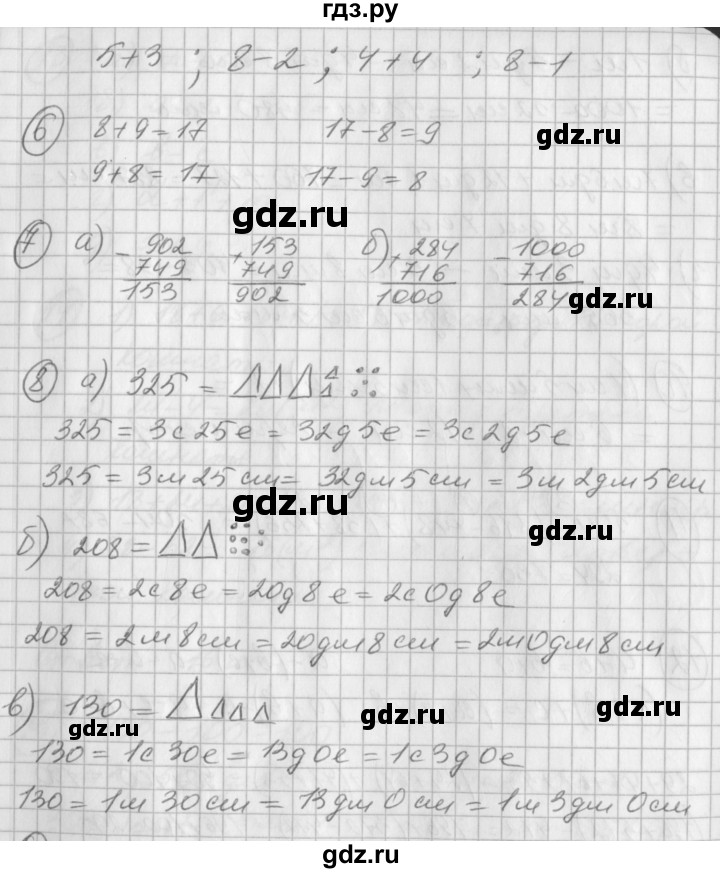 гдз.ру
5+3 ; 8-2 ; 4+4 ; 8-1
6 8+9=17 17-8=9
gdz.ru
9+8=17 17-9=8
gdz.ru
7 а) - 902 + 153 б) + 284 - 1000
749 749 716 716
153 902 1000 284
gdz.ru
8 а) 325 =
325 = 3с25е = 32д5е = 3с2д5е
325 = 3м25см = 32дм5см = 3м2дм5см
gdz.ru
gdz.ru
б) 208 =
208 = 2с8е = 20д8е = 2с0д8е
208 = 2м8см = 20дм8см = 2м0дм8см
в) 130 =
gdz.ru
gdz.ru
gdz.ru
130 = 1с30е = 13д0е = 1с3д0е
130 = 1м30см = 13дм0см = 1м3дм0см
gdz.ru